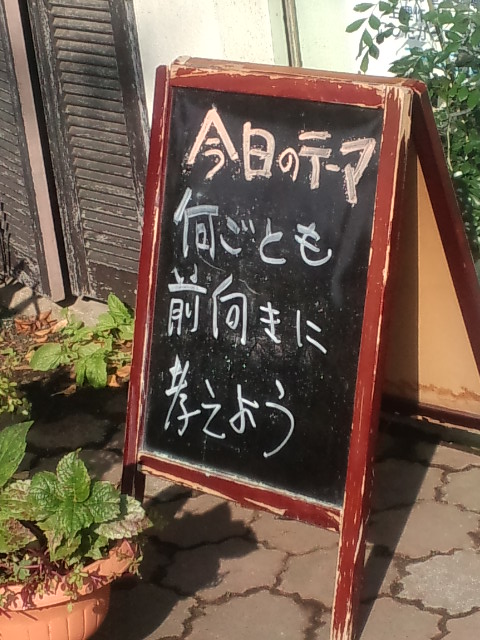 今日のテーマ
何ごとも
前向きに
考えよう